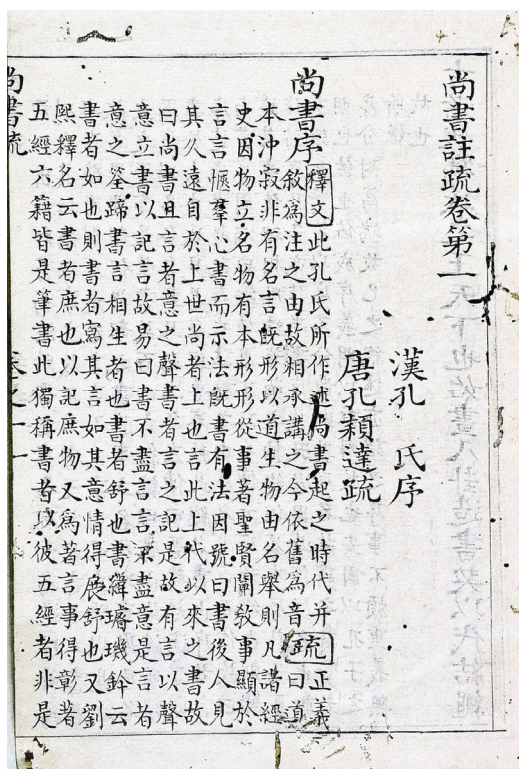 尚書註疏卷第一
漢孔 氏序
唐孔穎達疏
尚書序 釋文 此孔氏所作述尚書起之時代并
敘爲注之由故相承講之今依舊爲音 疏 正義曰道
本沖寂非有名言既形以道生物由名舉則凡諸經
史因物立名物有本形形從事著聖賢闡敎事顯於
言言愜羣心書而示法既書有法因號曰書後人見
其久遠自於上世尚者上也言此上代以來之書故
曰尚書且言者意之聲書者言之記是故有言以聲
意立書以記言故易曰書不盡言言不盡意是言者
意之筌蹄書言相生者也書者舒也書緯璿璣鈐云
書者如也則書者寫其言如其意情得展舒也又劉
熙釋名云書者庶也以記庶物又爲著言事得彰著
五經六籍皆是筆書此獨稱書者以彼五經者非是
尚書疏 卷之一 一